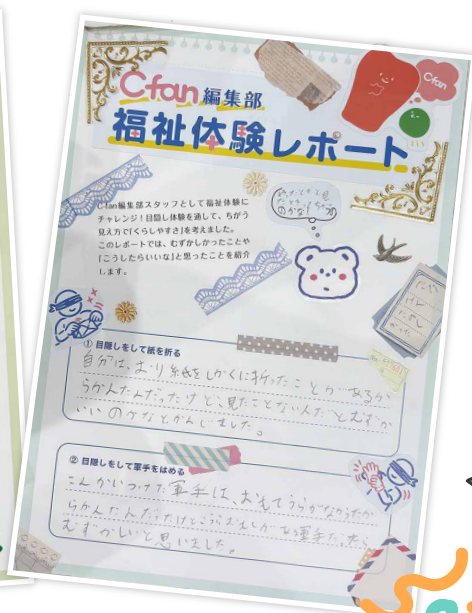 Cfan編集部
Cfan
福祉体験レポート
Cfan編集部スタッフとして福祉体験に
チャレンジ！目隠し体験を通して、ちがう
見え方で「くらしやすさ」を考えました。
このレポートでは、むずかしかったことや
「こうしたらいいな」と思ったことを紹介
します。
のかな！
① 目隠しをして紙を折る
自分は、おり紙をしかくに折ったことがあるか
らかんたんだったけど、見たことない人だとむずか
いいのかなとかんじました。
② 目隠しをして軍手をはめる
こんかいつけた軍手は、おもてうらがなかったか
らかんたんだったけどうらおもてがある軍手だったら
むずかしいと思いました。